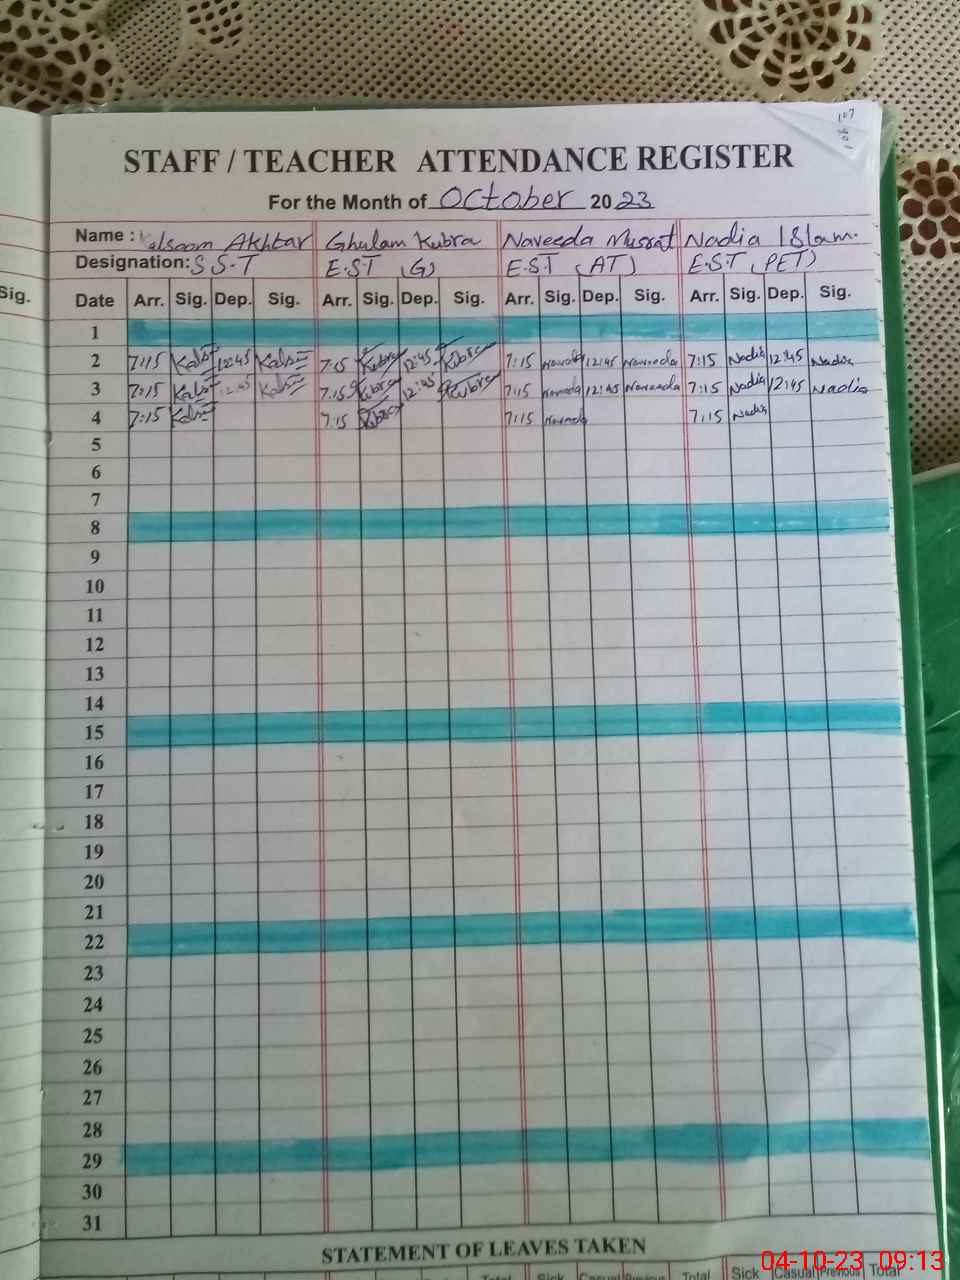 STAFF / TEACHER ATTENDANCE REGISTER
For the Month of October 2023
Name : Kalsoom Akhtar Ghulam Kubra Naveeda Mussrat Nadia Islam.
Designation: S.S.T E.S.T (G) E.S.T (AT) E.S.T (PET)
Sig. Date Arr. Sig. Dep. Sig. Arr. Sig. Dep. Sig. Arr. Sig. Dep. Sig. Arr. Sig. Dep. Sig.
1
2 7:15 12:45 7:15 Kubra 12:45 Kubra 7:15 Naveeda 12:45 Naveeda 7:15 Nadia 12:45 Nadia
3 7:15 12:45 7:15 Kubra 12:45 Kubra 7:15 Naveeda 12:45 Naveeda 7:15 Nadia 12:45 Nadia
4 7:15 7:15 Kubra 7:15 Naveeda 7:15 Nadia
5
6
7
8
9
10
11
12
13
14
15
16
17
18
19
20
21
22
23
24
25
26
27
28
29
30
31
STATEMENT OF LEAVES TAKEN
Total Sick Casual Previous Total Sick Casual Previous Total
04-10-23 09:13